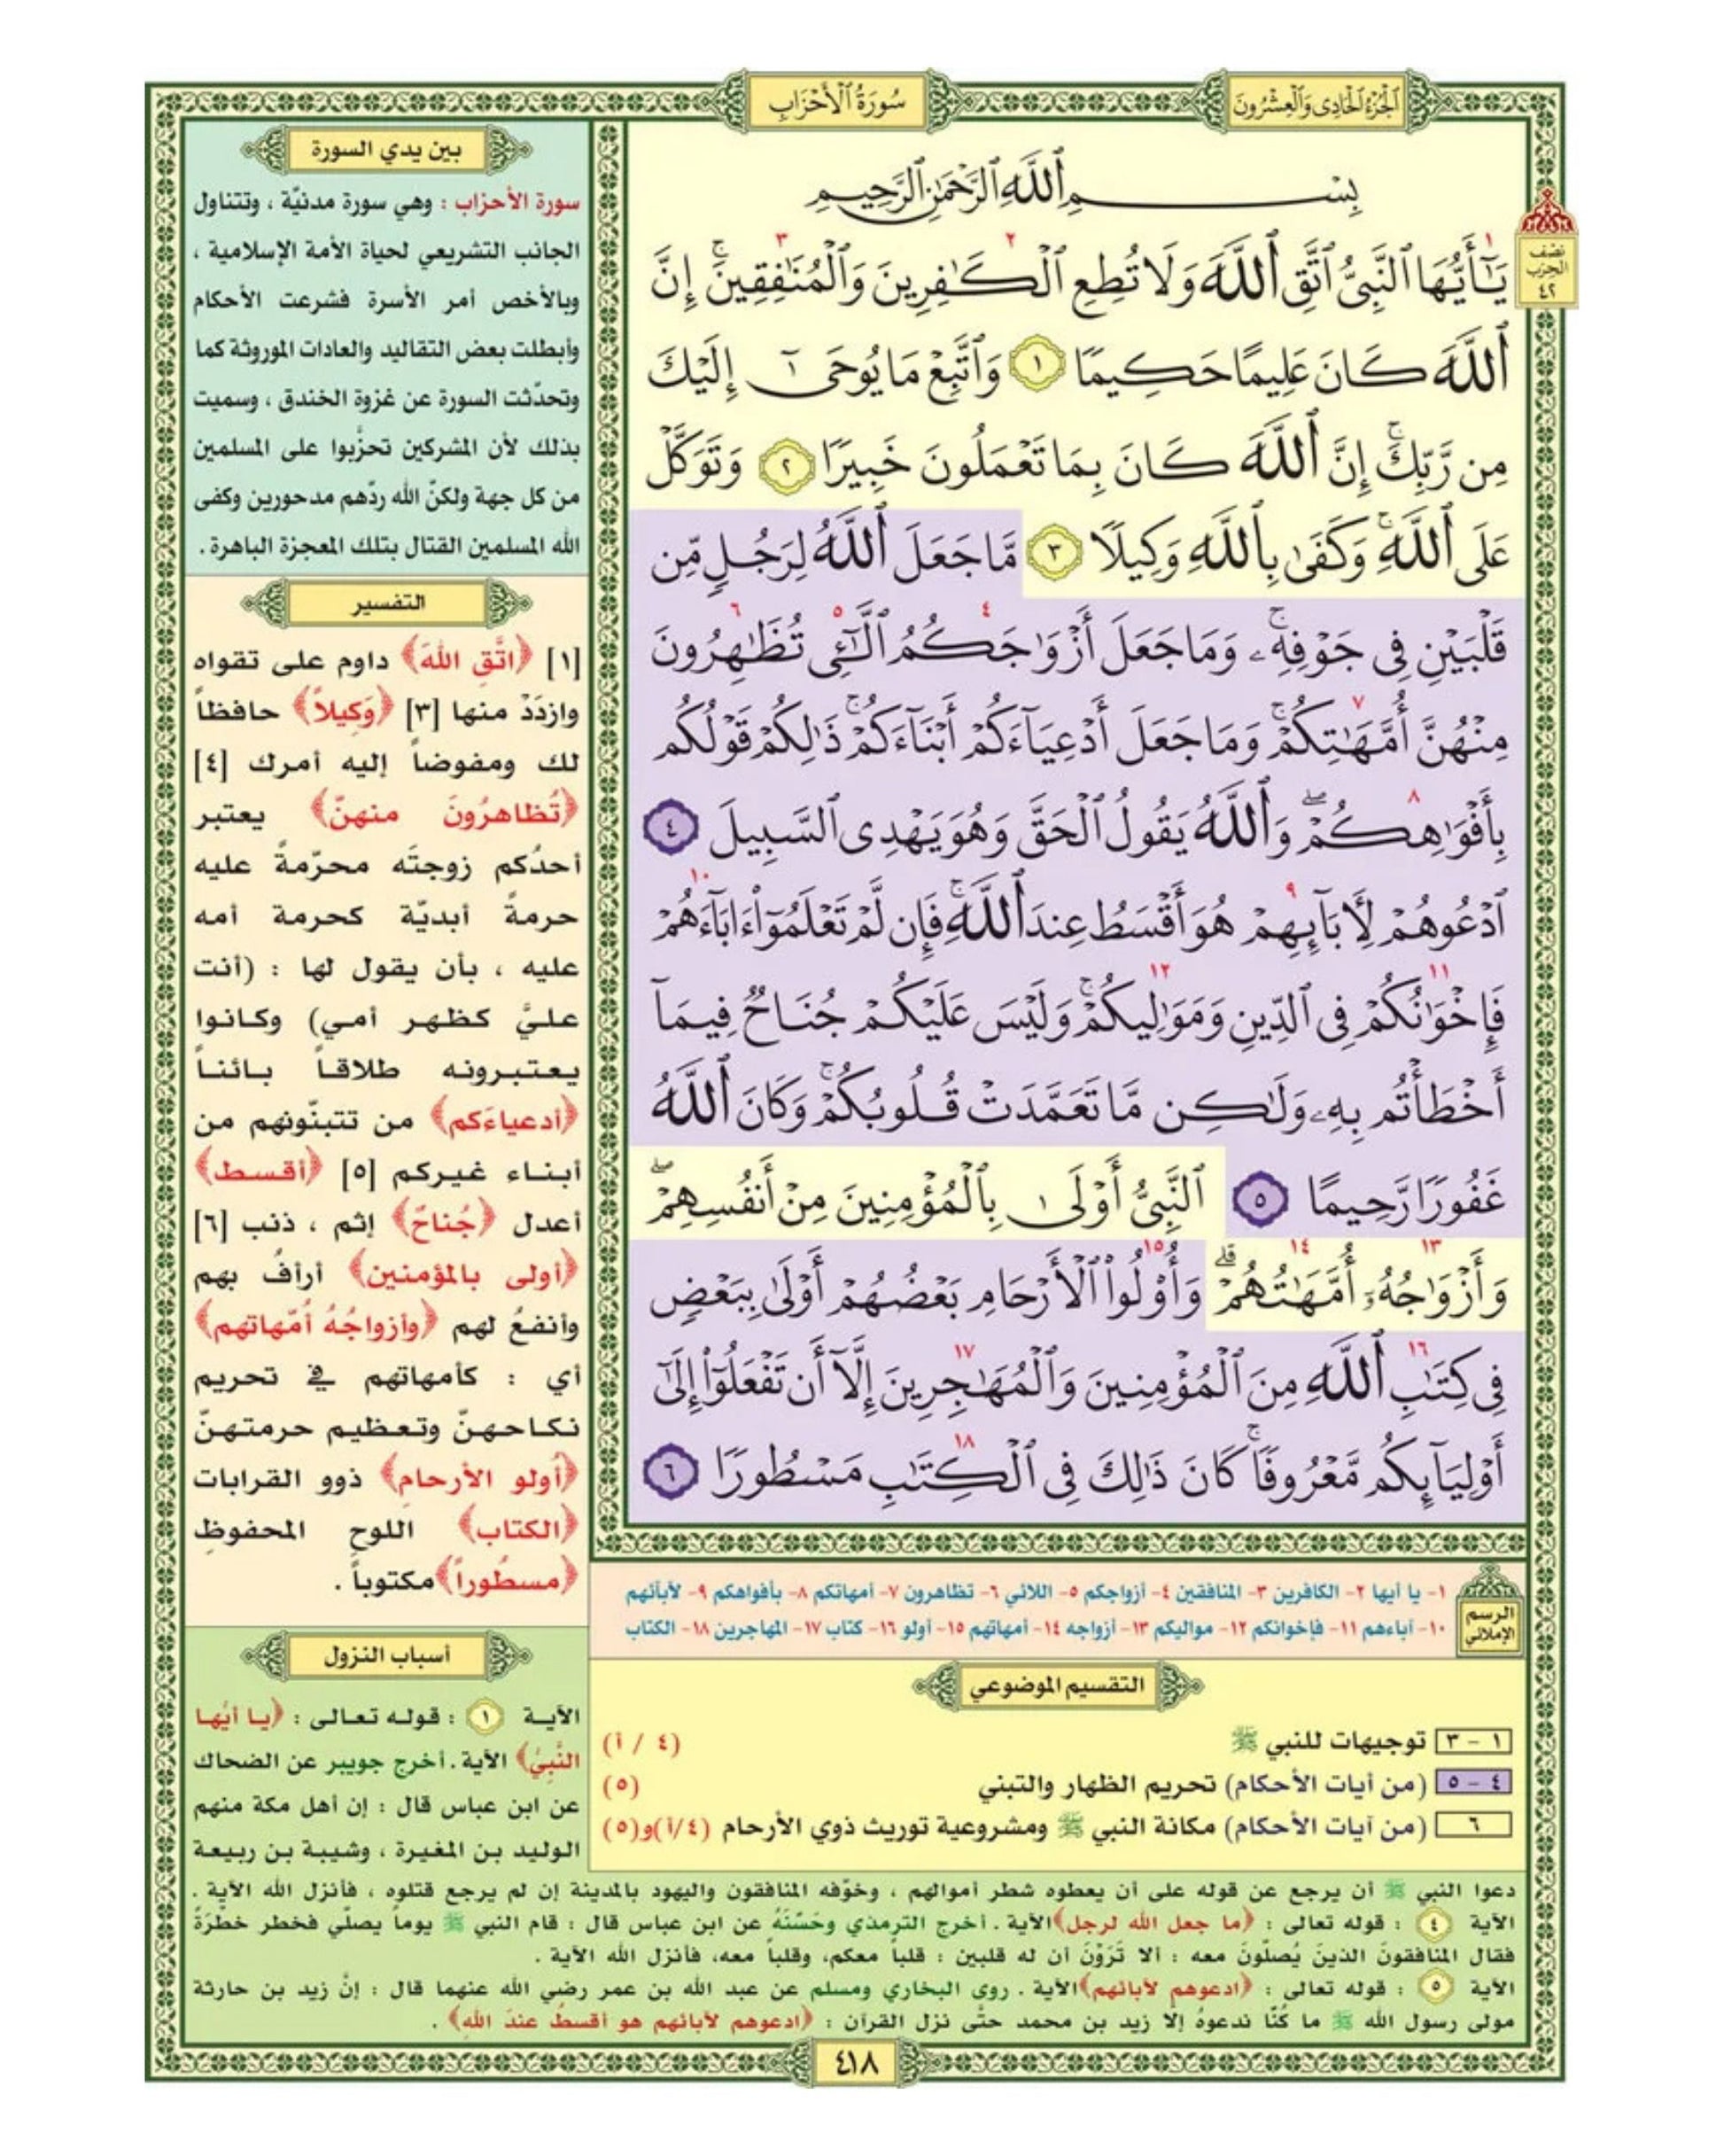 الجزء الحادي والعشرون
سورة الأحزاب
نصف
الحزب
٤٢
بِسْمِ ٱللَّهِ ٱلرَّحْمَٰنِ ٱلرَّحِيمِ
يَٰٓأَيُّهَا ٱلنَّبِيُّ ٱتَّقِ ٱللَّهَ وَلَا تُطِعِ ٱلْكَٰفِرِينَ وَٱلْمُنَٰفِقِينَۚ إِنَّ
ٱللَّهَ كَانَ عَلِيمًا حَكِيمًا ١ وَٱتَّبِعْ مَا يُوحَىٰٓ إِلَيْكَ
مِن رَّبِّكَۚ إِنَّ ٱللَّهَ كَانَ بِمَا تَعْمَلُونَ خَبِيرًا ٢ وَتَوَكَّلْ
عَلَى ٱللَّهِۚ وَكَفَىٰ بِٱللَّهِ وَكِيلًا ٣ مَّا جَعَلَ ٱللَّهُ لِرَجُلٍ مِّن
قَلْبَيْنِ فِي جَوْفِهِۦۚ وَمَا جَعَلَ أَزْوَٰجَكُمُ ٱلَّٰٓـِٔي تُظَٰهِرُونَ
مِنْهُنَّ أُمَّهَٰتِكُمْۚ وَمَا جَعَلَ أَدْعِيَآءَكُمْ أَبْنَآءَكُمْۚ ذَٰلِكُمْ قَوْلُكُم
بِأَفْوَٰهِكُمْۖ وَٱللَّهُ يَقُولُ ٱلْحَقَّ وَهُوَ يَهْدِي ٱلسَّبِيلَ ٤
ٱدْعُوهُمْ لِأَبَآئِهِمْ هُوَ أَقْسَطُ عِندَ ٱللَّهِۚ فَإِن لَّمْ تَعْلَمُوٓا۟ ءَابَآءَهُمْ
فَإِخْوَٰنُكُمْ فِي ٱلدِّينِ وَمَوَٰلِيكُمْۚ وَلَيْسَ عَلَيْكُمْ جُنَاحٌ فِيمَآ
أَخْطَأْتُم بِهِۦ وَلَٰكِن مَّا تَعَمَّدَتْ قُلُوبُكُمْۚ وَكَانَ ٱللَّهُ
غَفُورًا رَّحِيمًا ٥ ٱلنَّبِيُّ أَوْلَىٰ بِٱلْمُؤْمِنِينَ مِنْ أَنفُسِهِمْۖ
وَأَزْوَٰجُهُۥٓ أُمَّهَٰتُهُمْۗ وَأُو۟لُوا۟ ٱلْأَرْحَامِ بَعْضُهُمْ أَوْلَىٰ بِبَعْضٍ
فِي كِتَٰبِ ٱللَّهِ مِنَ ٱلْمُؤْمِنِينَ وَٱلْمُهَٰجِرِينَ إِلَّآ أَن تَفْعَلُوٓا۟ إِلَىٰٓ
أَوْلِيَآئِكُم مَّعْرُوفًاۚ كَانَ ذَٰلِكَ فِي ٱلْكِتَٰبِ مَسْطُورًا ٦
الرسم
الإملائي
١- يا أيها ٢- الكافرين ٣- المنافقين ٤- أزواجكم ٥- اللائي ٦- تظاهرون ٧- أمهاتكم ٨- بأفواهكم ٩- لآبائهم
١٠- آباءهم ١١- فإخوانكم ١٢- مواليكم ١٣- أزواجه ١٤- أمهاتهم ١٥- أولو ١٦- كتاب ١٧- المهاجرين ١٨- الكتاب
التقسيم الموضوعي
١ - ٣ توجيهات للنبي ﷺ (٤ / أ)
٤ - ٥ (من آيات الأحكام) تحريم الظهار والتبني (٥)
٦ (من آيات الأحكام) مكانة النبي ﷺ ومشروعية توريث ذوي الأرحام (٤/أ)و(٥)
بين يدي السورة
سورة الأحزاب : وهي سورة مدنيّة ، وتتناول
الجانب التشريعي لحياة الأمة الإسلامية ،
وبالأخص أمر الأسرة فشرعت الأحكام
وأبطلت بعض التقاليد والعادات الموروثة كما
وتحدّثت السورة عن غزوة الخندق ، وسميت
بذلك لأن المشركين تحزّبوا على المسلمين
من كل جهة ولكنّ الله ردّهم مدحورين وكفى
الله المسلمين القتال بتلك المعجزة الباهرة .
التفسير
[١] ﴿اتَّقِ اللهَ﴾ داوم على تقواه
وازدَدْ منها [٣] ﴿وَكيلاً﴾ حافظاً
لك ومفوضاً إليه أمرك [٤]
﴿تُظاهرُونَ منهنّ﴾ يعتبر
أحدُكم زوجتَه محرّمةً عليه
حرمةً أبديّة كحرمة أمه
عليه ، بأن يقول لها : (أنت
عليَّ كظهر أمي) وكانوا
يعتبرونه طلاقاً بائناً
﴿أدعياءَكم﴾ من تتبنّونهم من
أبناء غيركم [٥] ﴿أقسط﴾
أعدل ﴿جُناحٌ﴾ إثم ، ذنب [٦]
﴿أولى بالمؤمنين﴾ أرأفُ بهم
وأنفعُ لهم ﴿وأزواجُهُ أمّهاتهم﴾
أي : كأمهاتهم في تحريم
نكاحهنّ وتعظيم حرمتهنّ
﴿أولو الأرحام﴾ ذوو القرابات
﴿الكتاب﴾ اللوح المحفوظ
﴿مسطوراً﴾ مكتوباً .
أسباب النزول
الآية ١ : قوله تعالى : ﴿يا أيُّها
النَّبيُّ﴾ الآية . أخرج جويبر عن الضحاك
عن ابن عباس قال : إن أهل مكة منهم
الوليد بن المغيرة ، وشيبة بن ربيعة
دعوا النبي ﷺ أن يرجع عن قوله على أن يعطوه شطر أموالهم ، وخوّفه المنافقون واليهود بالمدينة إن لم يرجع قتلوه ، فأنزل الله الآية .
الآية ٤ : قوله تعالى : ﴿ما جعل الله لرجل﴾ الآية . أخرج الترمذي وحَسَّنَهُ عن ابن عباس قال : قام النبي ﷺ يوماً يصلّي فخطر خطْرَةً
فقال المنافقونَ الذينَ يُصلّونَ معه : ألا تَرَوْنَ أن له قلبين : قلباً معكم، وقلباً معه، فأنزل الله الآية .
الآية ٥ : قوله تعالى : ﴿ادعوهم لآبائهم﴾ الآية . روى البخاري ومسلم عن عبد الله بن عمر رضي الله عنهما قال : إنّ زيد بن حارثة
مولى رسول الله ﷺ ما كُنّا ندعوهُ إلا زيد بن محمد حتّى نزل القرآن : ﴿ادعوهم لآبائهم هو أقسطُ عندَ الله﴾ .
٤١٨